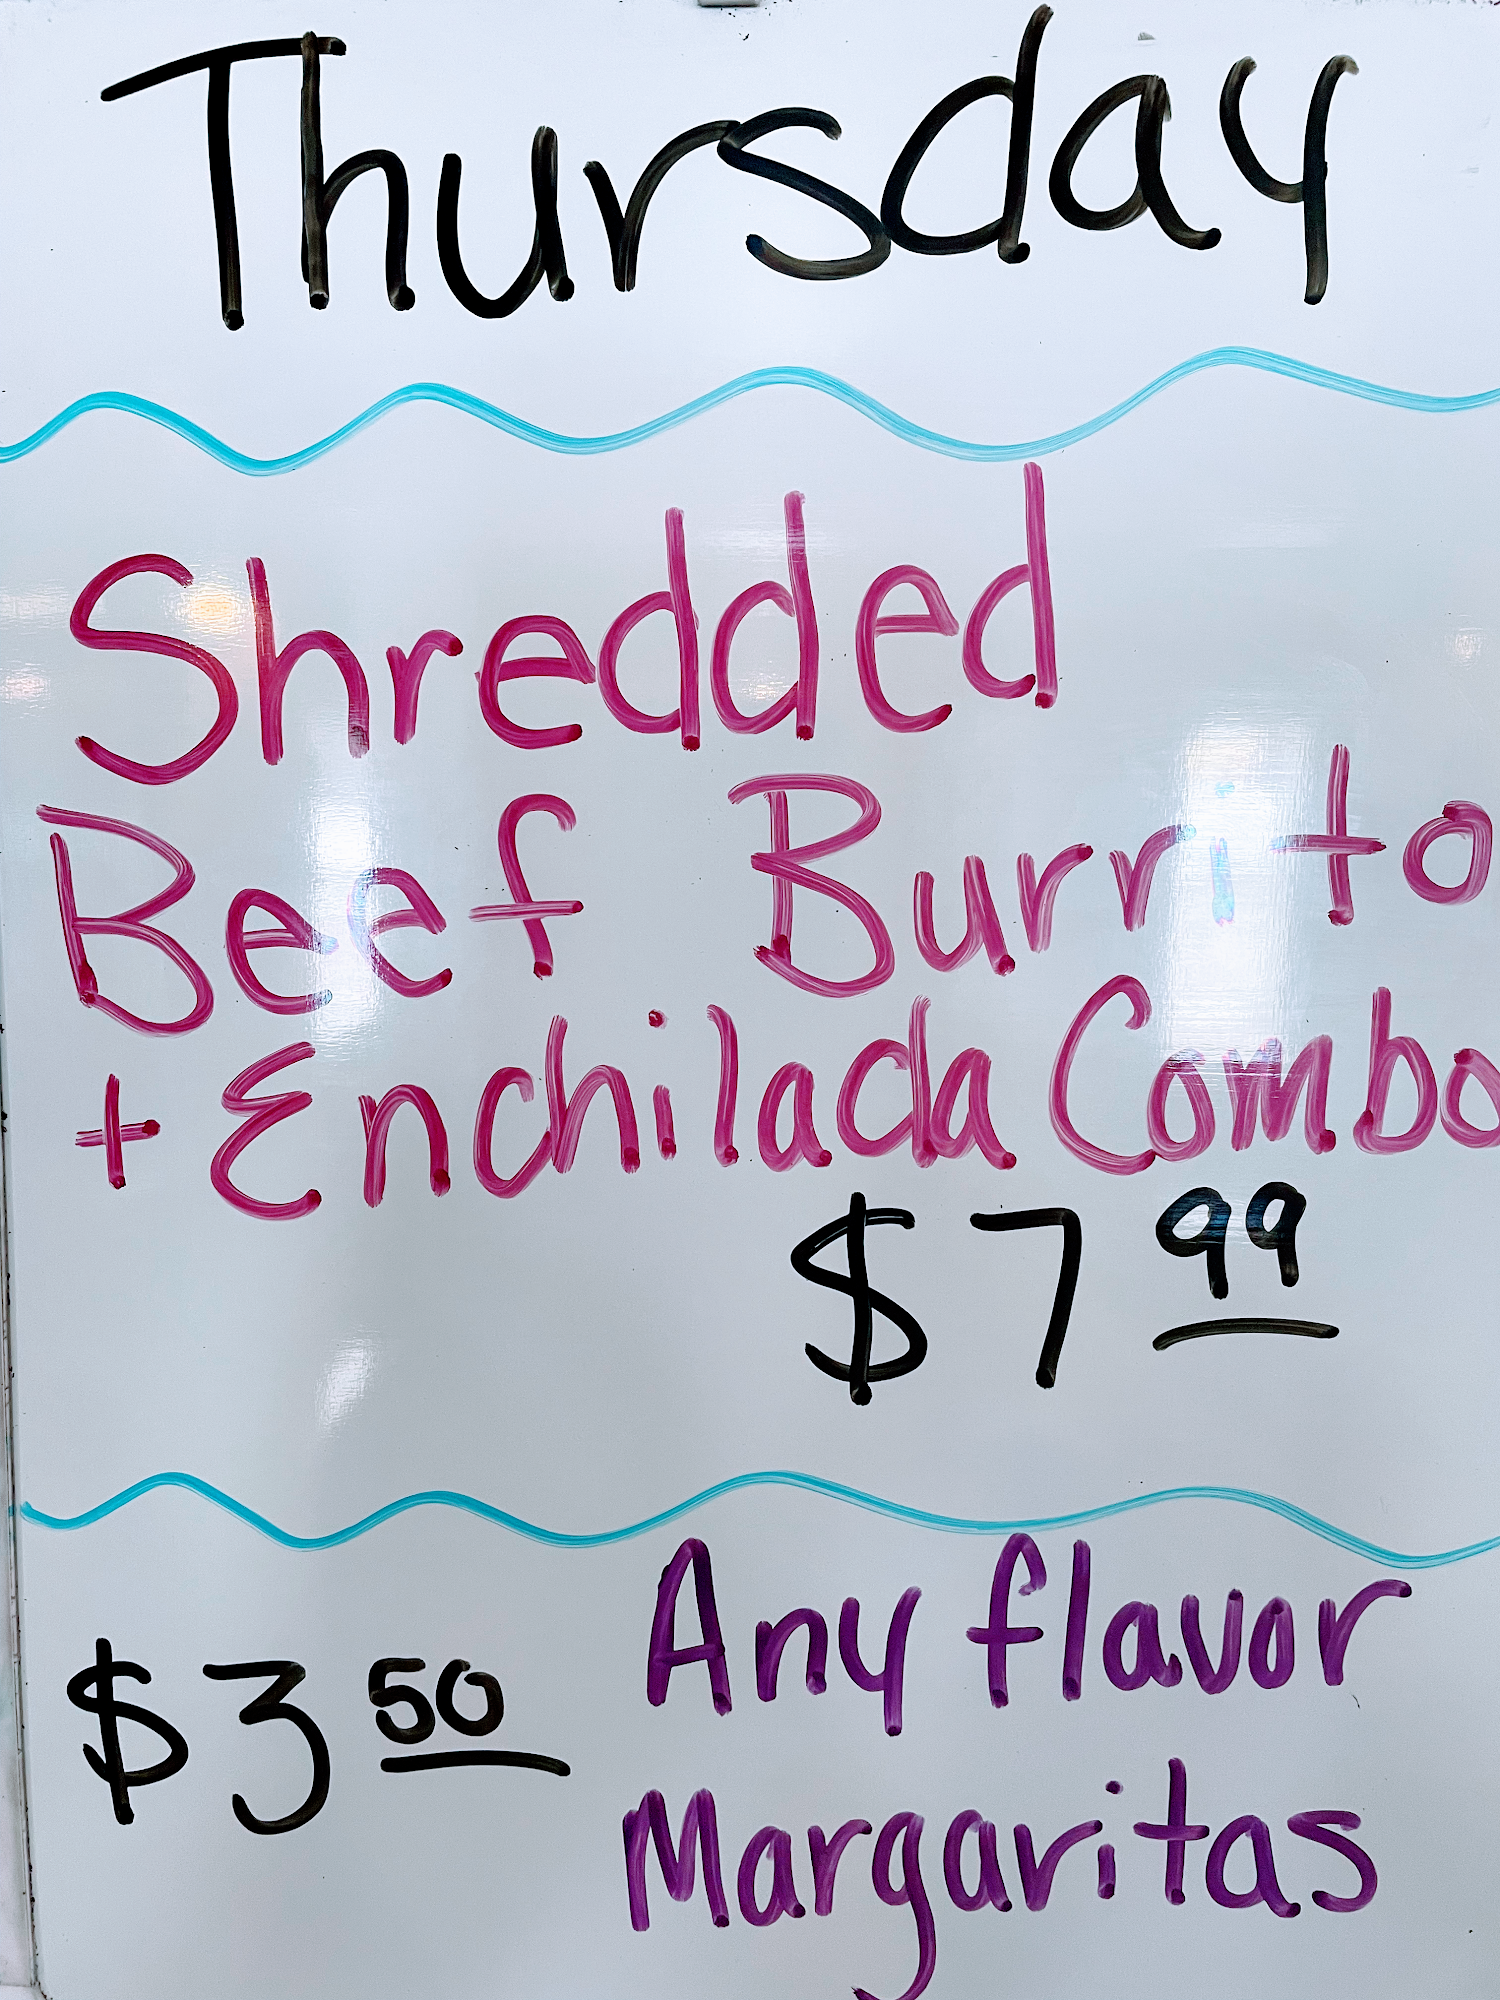 Thursday
Shredded
Beef Burrito
+ Enchilada Combo
$7 99
Any flavor
$3 50
Margaritas